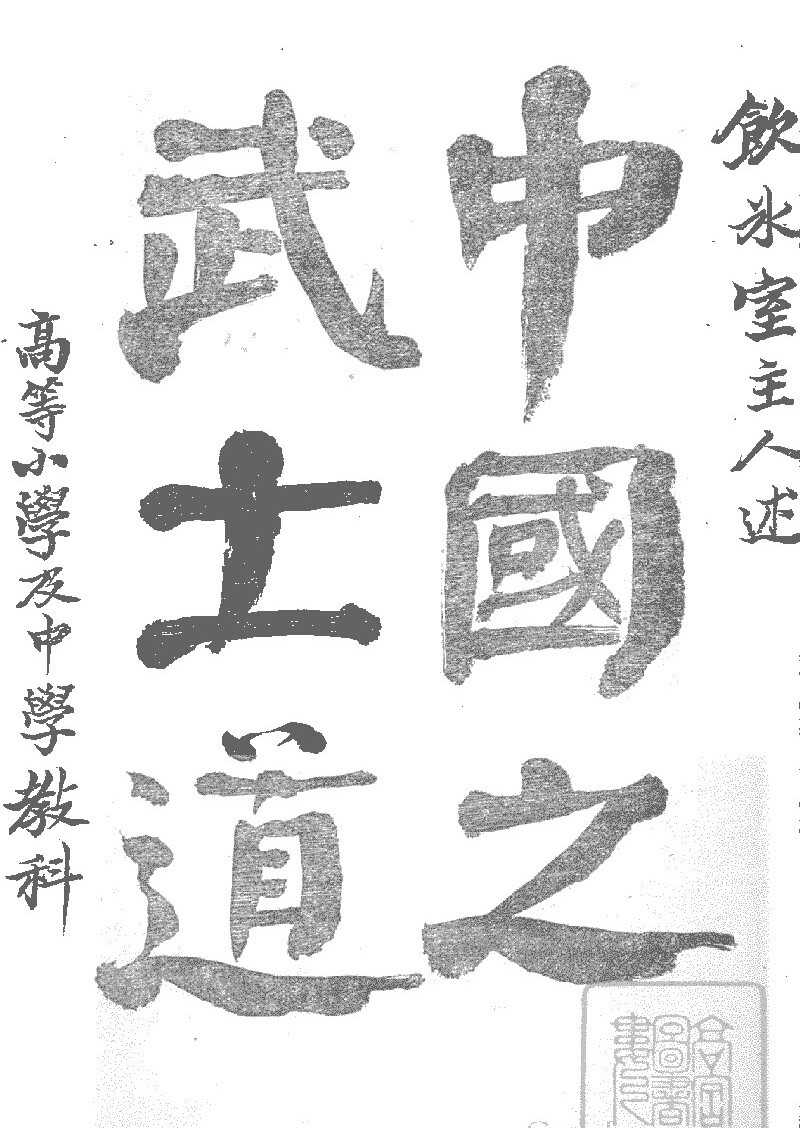 飲冰室主人述
中國之
武士道
高等小學及中學教科